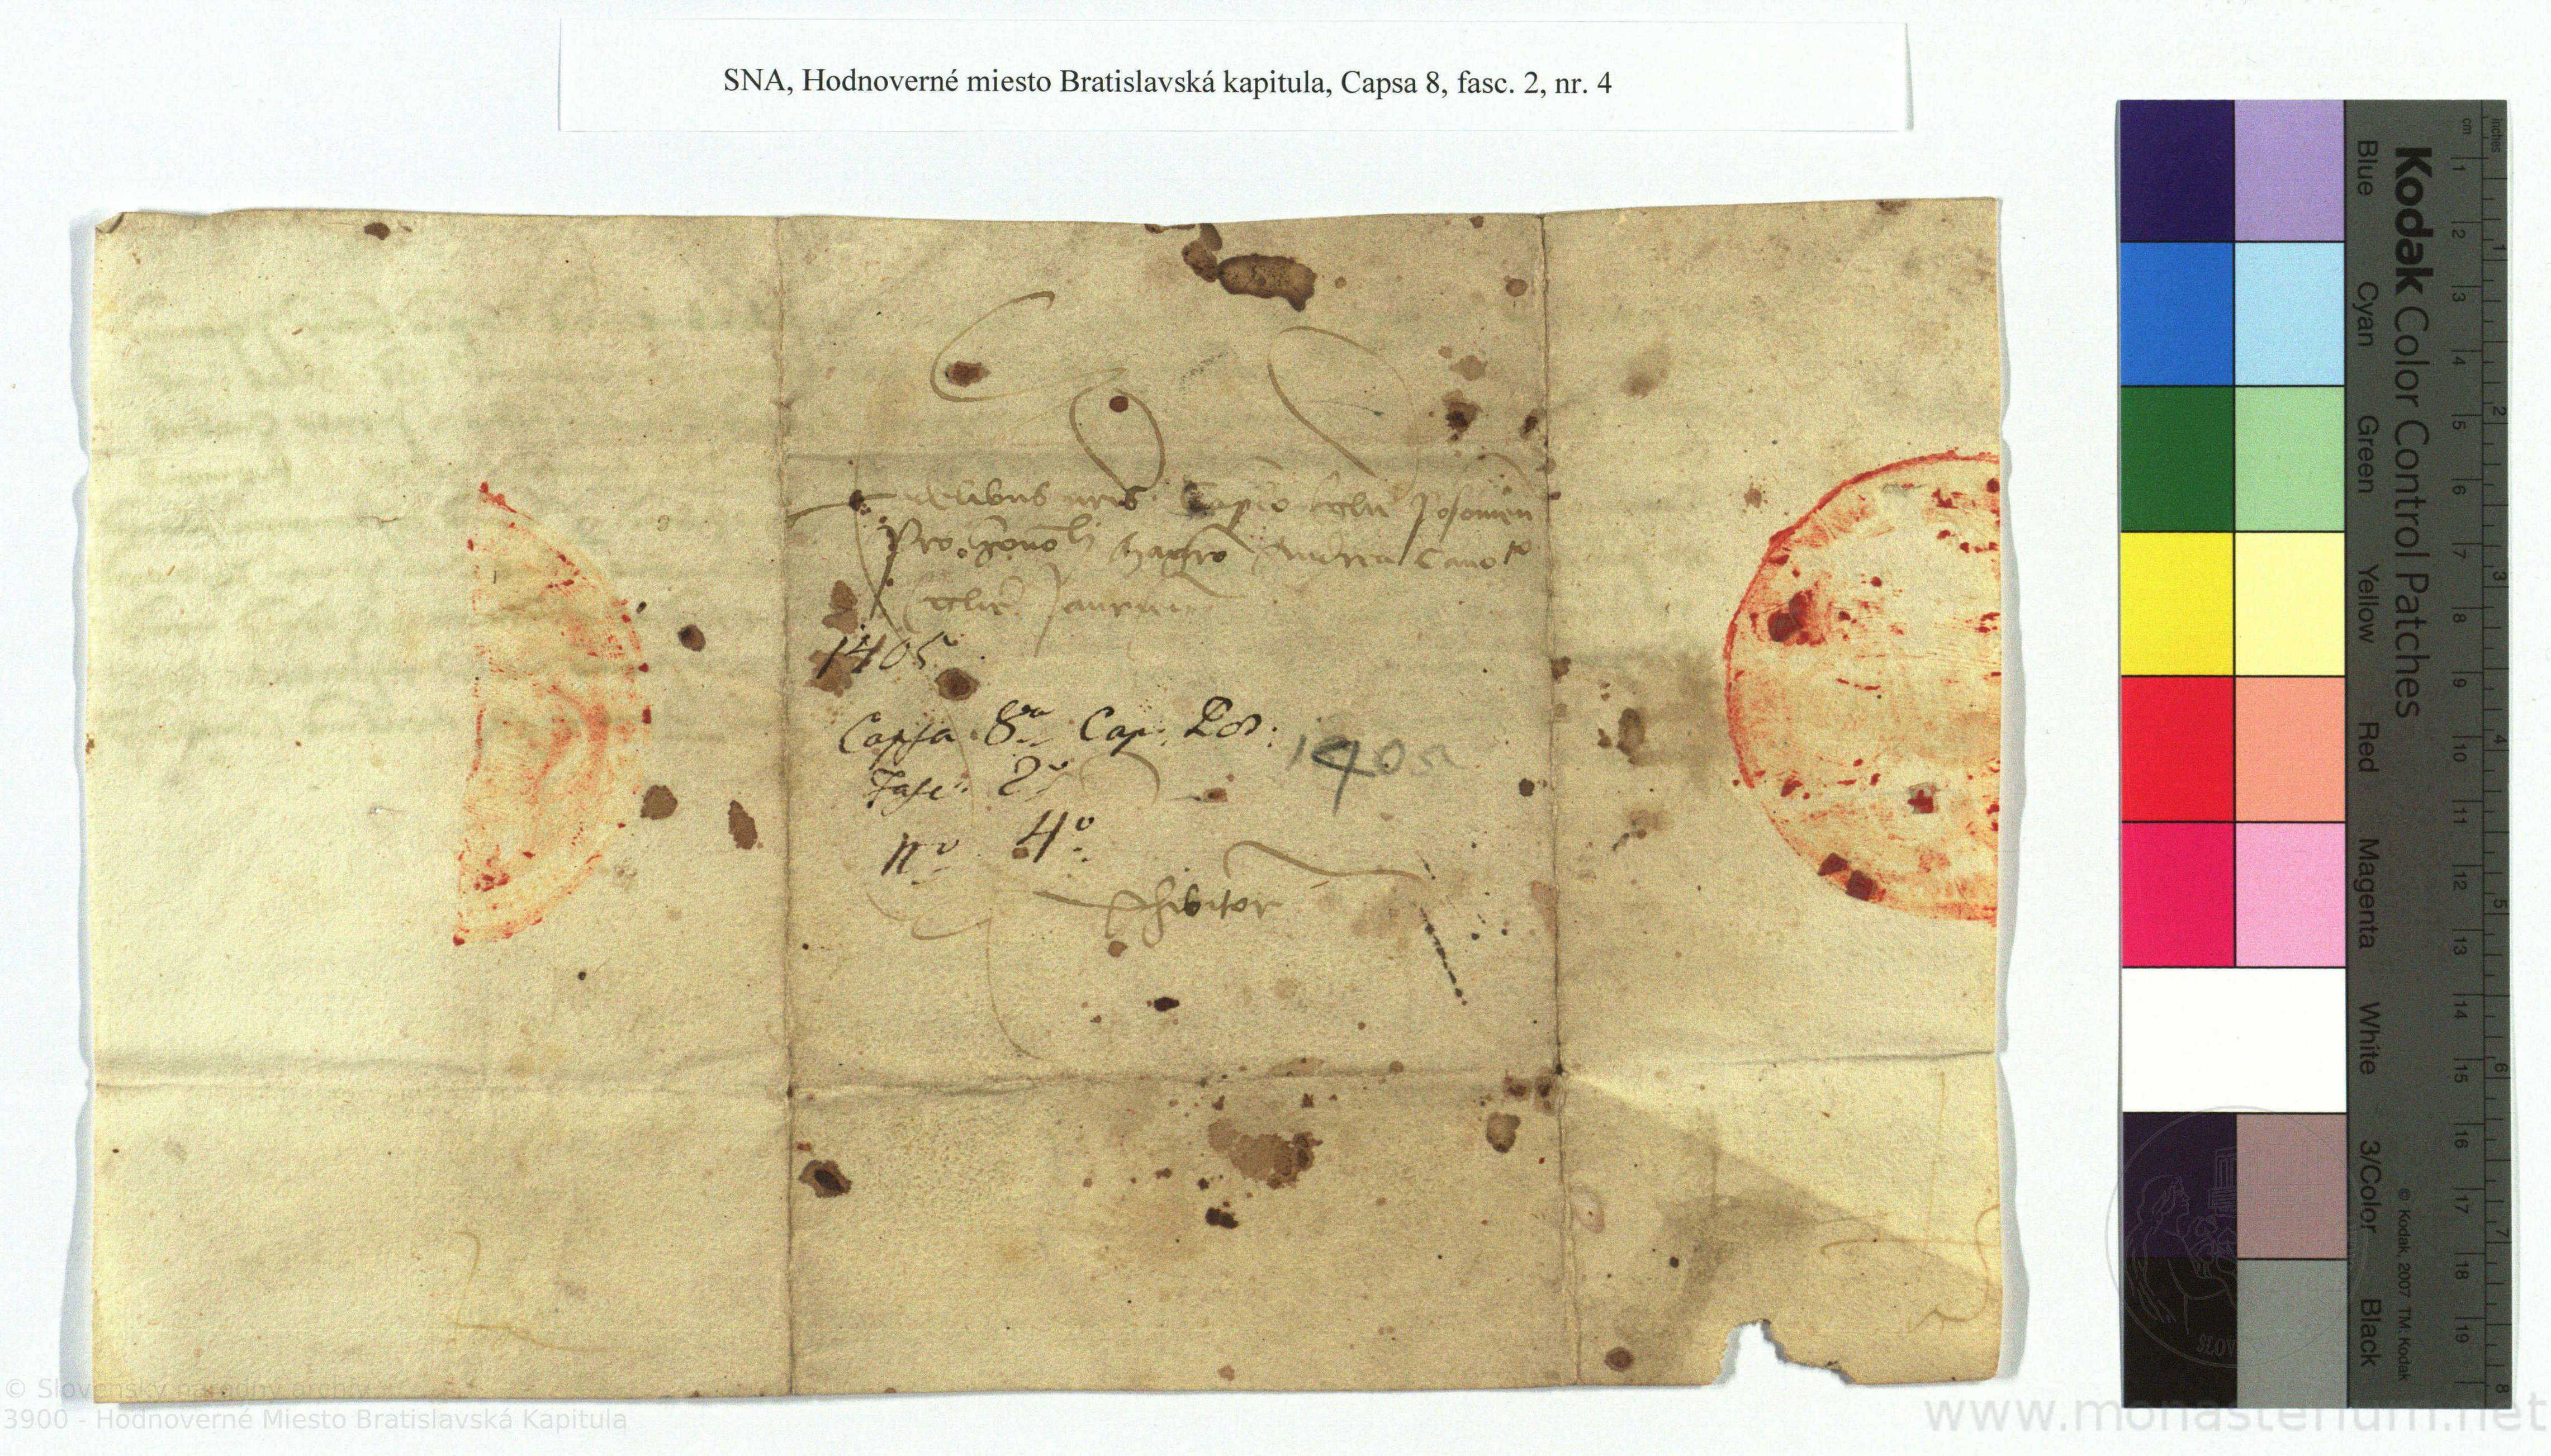 SNA, Hodnoverné miesto Bratislavská kapitula, Capsa 8, fasc. 2, nr. 4
Fidelibus nris Caplo Ecclie Posonien
Pro honobli Magro Andrea Canoco
Ecclie Jaurien
1405
Capsa 8va Cap. Pos:
1405
Fasc. 2s
No 4o
Exhibitor
Kodak Color Control Patches
Blue Cyan Green Yellow Red Magenta White 3/Color Black
cm 1 2 3 4 5 6 7 8 9 10 11 12 13 14 15 16 17 18 19
inches 1 2 3 4 5 6 7 8
© Kodak, 2007 TM: Kodak
© Slovenský národný archív
3900 - Hodnoverné Miesto Bratislavská Kapitula
www.monasterium.net